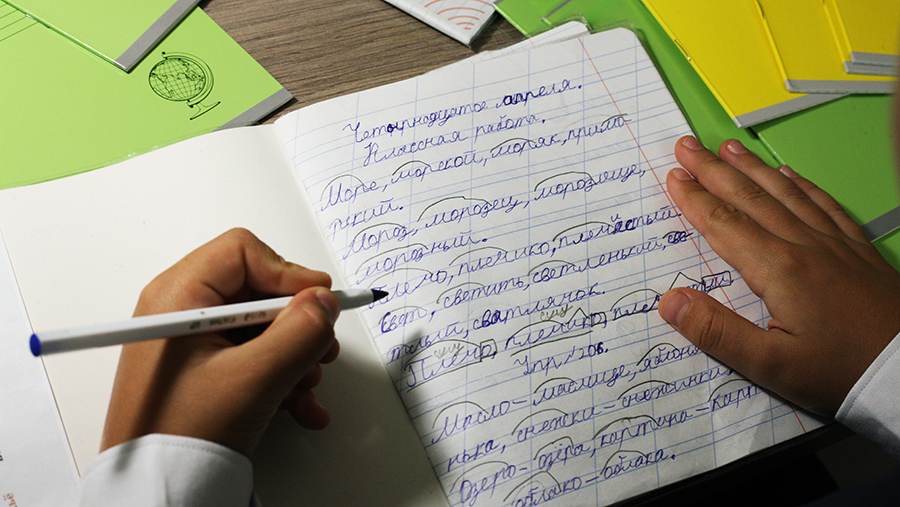 Четырнадцатое апреля.
Классная работа.
Море, морской, моряк, примо-
рский.
Мороз, морозец, морозище,
морозный.
Плечо, плечико, плечистый.
Свет, светить, светленький, све-
тлый, светлячок.
сущ сущ
Плечо, плечико,
Упр. №206.
Масло – маслице, яблоня
нька, снежки – снежинки,
Озеро – озёра, картина – карти
облако – облака.